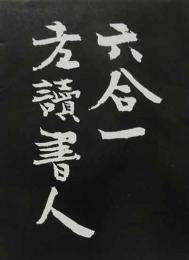 六合一
左讀書人